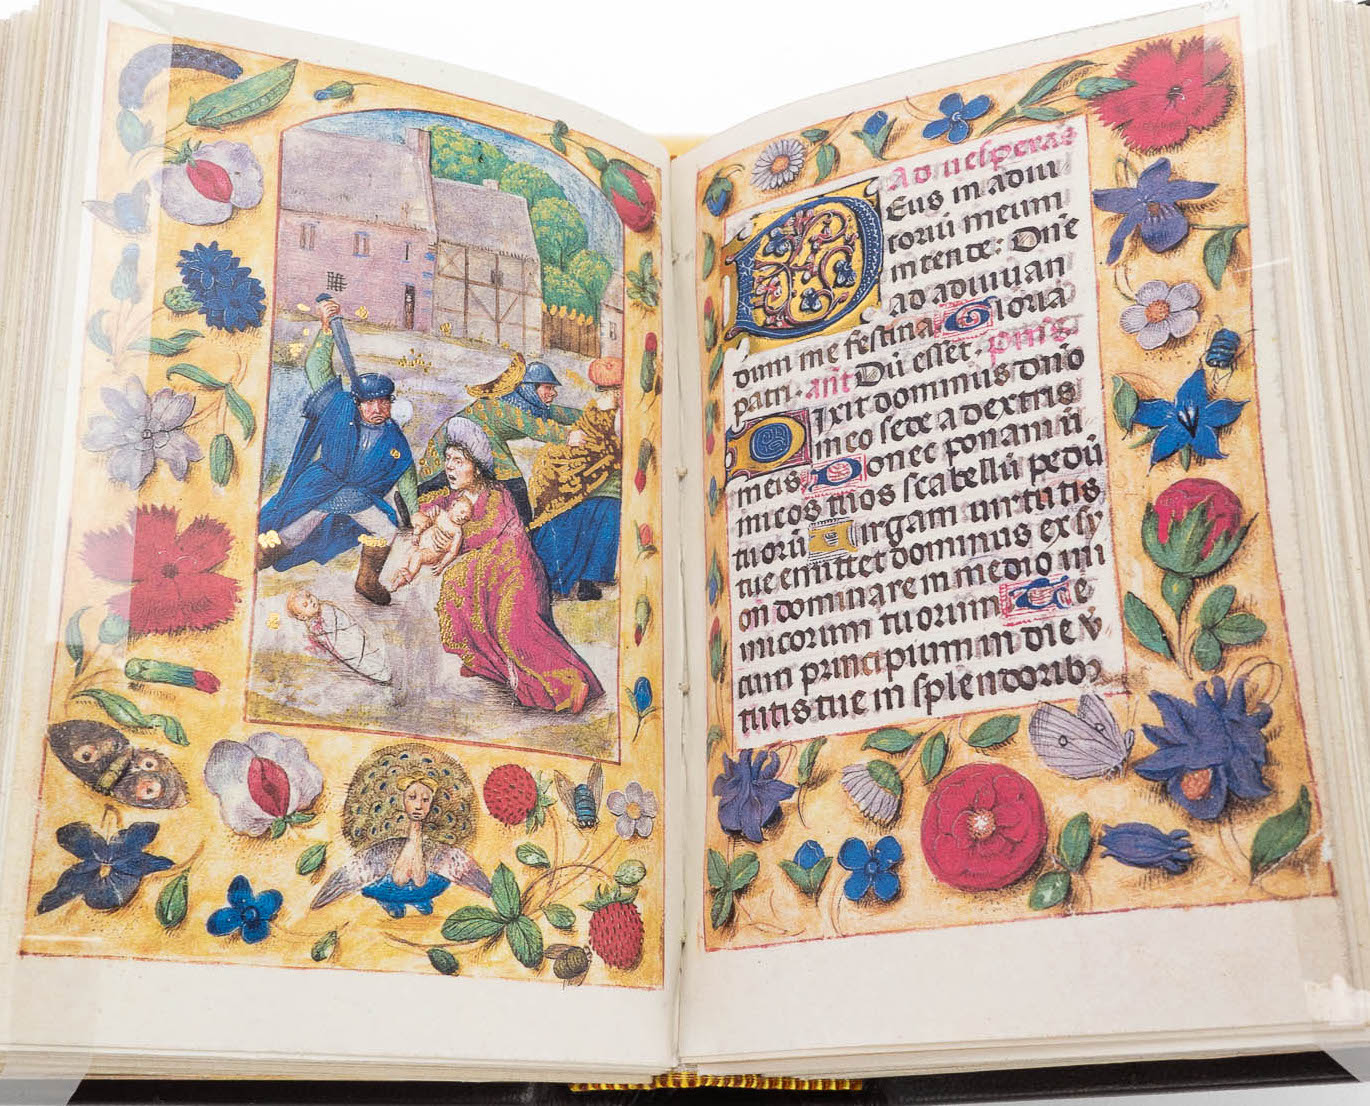 Ad vesperas
Deus in adiu
toriū meum
intende: Dne
ad adiuuan
dum me festina Gloria
patri. añt Dū esset. psūs
Dixit dominus dn̄o
meo sede a dextris
meis Donec ponam ī
micos tuos scabellū pedū
tuorū Virgam virtutis
tue emittet dominus ex sy
on dominare in medio ini
micorum tuorum Te
cum principium in die v̄
tutis tue in splendoribꝫ